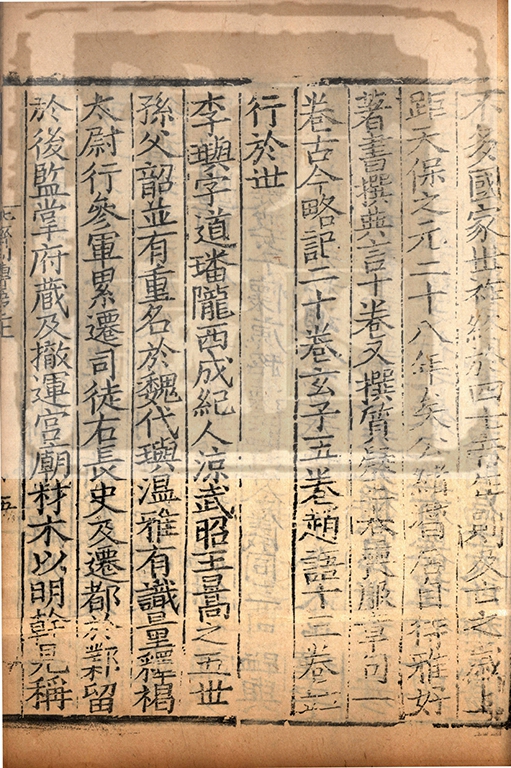 不多國家世祚終於四七齊受禪則及亡之歲上
距天保之元二十八年矣公緒潛居自待雅好
著書撰典言十卷又撰質疑五卷喪服章句一
卷古今略記二十卷玄子五卷趙語十三卷並
行於世
李璵字道璠隴西成紀人涼武昭王暠之五世
孫父韶並有重名於魏代璵溫雅有識量釋褐
太尉行參軍累遷司徒右長史及遷都於鄴留
於後監掌府藏及撤運宮廟材木以明幹見稱